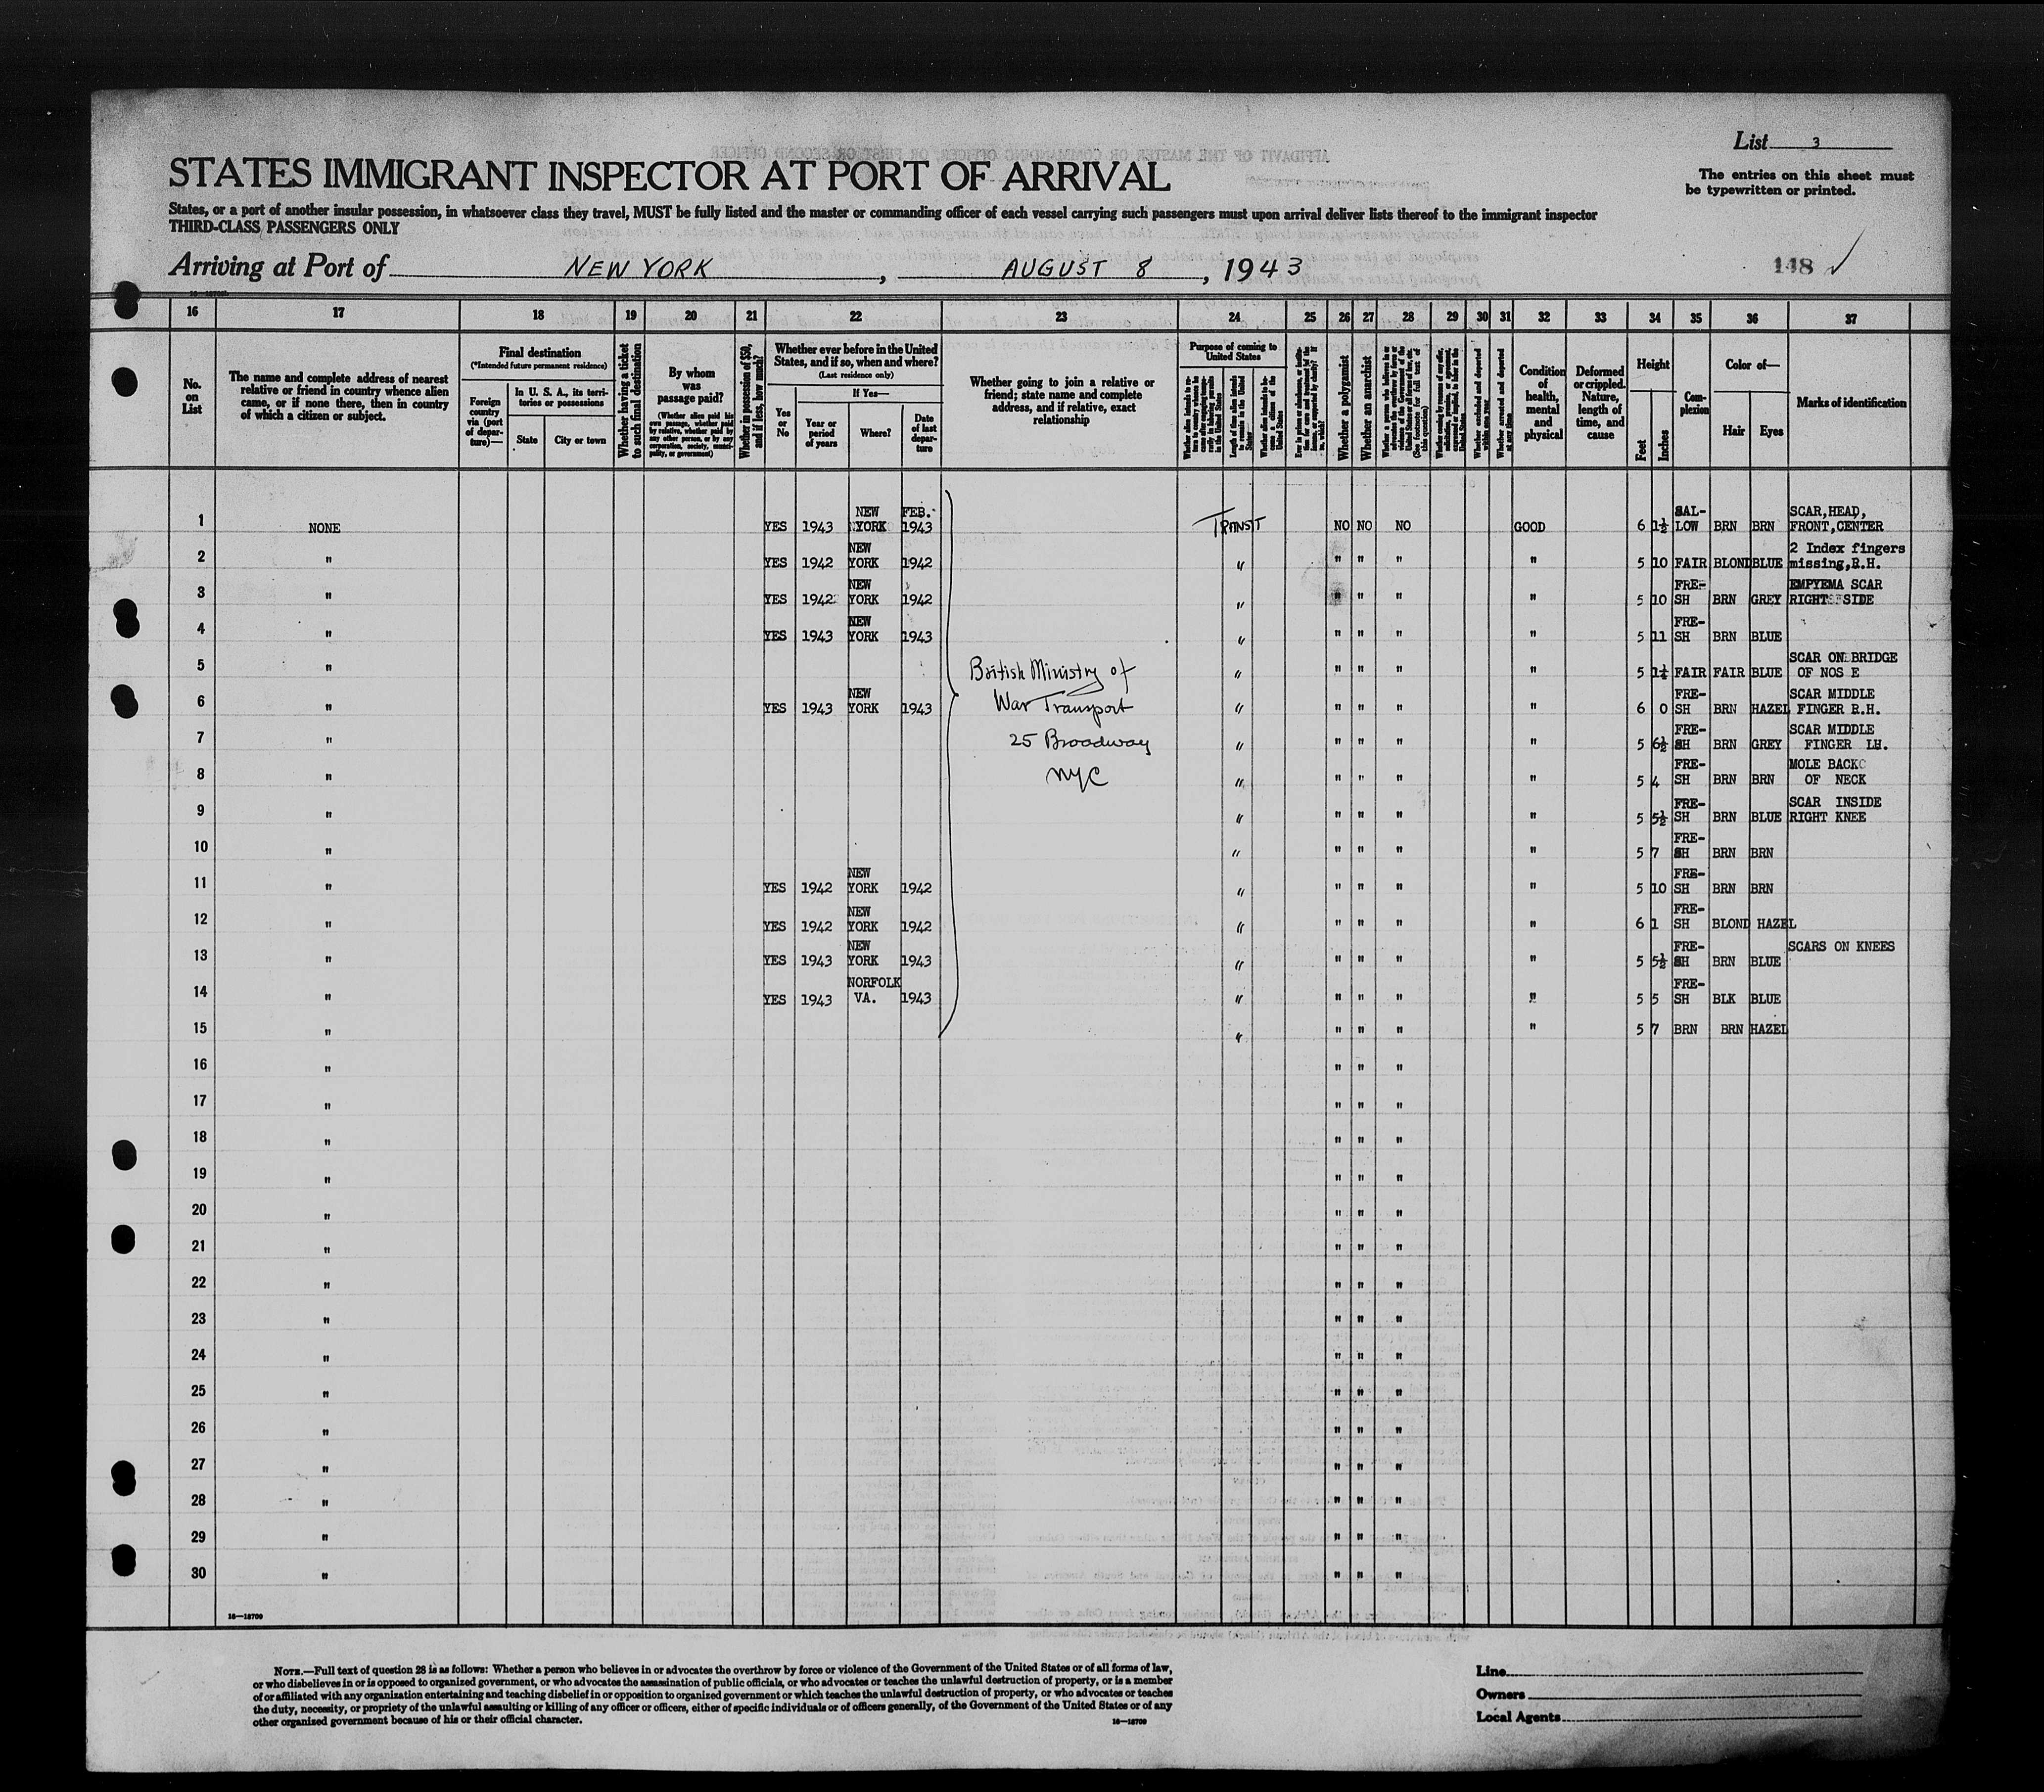 List 3
The entries on this sheet must
be typewritten or printed.
STATES IMMIGRANT INSPECTOR AT PORT OF ARRIVAL
States, or a port of another insular possession, in whatsoever class they travel, MUST be fully listed and the master or commanding officer of each vessel carrying such passengers must upon arrival deliver lists thereof to the immigrant inspector
THIRD-CLASS PASSENGERS ONLY
Arriving at Port of NEW YORK, AUGUST 8, 1943
148 ✓
16 17 18 19 20 21 22 23 24 25 26 27 28 29 30 31 32 33 34 35 36 37
No.
on
List
The name and complete address of nearest
relative or friend in country whence alien
came, or if none there, then in country
of which a citizen or subject.
Final destination
(*Intended future permanent residence)
Foreign
country
via (port
of depar-
ture)—
In U. S. A., its terri-
tories or possessions
State City or town
Whether having a ticket
to such final destination
By whom
was
passage paid?
(Whether alien paid his
own passage, whether paid
by relative, whether paid by
any other person, or by any
corporation, society, munici-
pality, or government)
Whether in possession of $50,
and if less, how much?
Whether ever before in the United
States, and if so, when and where?
(Last residence only)
Yes
or
No
If Yes—
Year or
period
of years
Where?
Date
of last
depar-
ture
Whether going to join a relative or
friend; state name and complete
address, and if relative, exact
relationship
Purpose of coming to
United States
Whether a polygamist
Whether an anarchist
Whether arrested and deported
at any time
Condition
of
health,
mental
and
physical
Deformed
or crippled.
Nature,
length of
time, and
cause
Height
Feet
Inches
Com-
plexion
Color of—
Hair Eyes
Marks of identification
1 NONE YES 1943 NEW YORK FEB. 1943 TRANSIT NO NO NO GOOD 6 1½ SAL-LOW BRN BRN SCAR, HEAD, FRONT, CENTER
2 " YES 1942 NEW YORK 1942 " " " " " 5 10 FAIR BLOND BLUE 2 Index fingers missing, R.H.
3 " YES 1942 NEW YORK 1942 " " " " " 5 10 FRE-SH BRN GREY EMPYEMA SCAR RIGHT SIDE
4 " YES 1943 NEW YORK 1943 " " " " " 5 11 FRE-SH BRN BLUE
5 " " " " " " 5 1½ FAIR FAIR BLUE SCAR ON BRIDGE OF NOS E
6 " YES 1943 NEW YORK 1943 " " " " " 6 0 FRE-SH BRN HAZEL SCAR MIDDLE FINGER R.H.
7 " " " " " " 5 6½ FRE-SH BRN GREY SCAR MIDDLE FINGER LH.
8 " " " " " " 5 4 FRE-SH BRN BRN MOLE BACK OF NECK
9 " " " " " " 5 5½ FRE-SH BRN BLUE SCAR INSIDE RIGHT KNEE
10 " " " " " " 5 7 FRE-SH BRN BRN
11 " YES 1942 NEW YORK 1942 " " " " " 5 10 FRE-SH BRN BRN
12 " YES 1942 NEW YORK 1942 " " " " " 6 1 FRE-SH BLOND HAZEL
13 " YES 1943 NEW YORK 1943 " " " " " 5 5½ FRE-SH BRN BLUE SCARS ON KNEES
14 " YES 1943 NORFOLK VA. 1943 " " " " " 5 5 FRE-SH BLK BLUE
15 " " " " " " 5 7 BRN BRN HAZEL
British Ministry of
War Transport
25 Broadway
NYC
16 " " " "
17 " " " "
18 " " " "
19 " " " "
20 " " " "
21 " " " "
22 " " " "
23 " " " "
24 " " " "
25 " " " "
26 " " " "
27 " " " "
28 " " " "
29 " " " "
30 " " " "
16—18709
NOTE.—Full text of question 28 is as follows: Whether a person who believes in or advocates the overthrow by force or violence of the Government of the United States or of all forms of law,
or who disbelieves in or is opposed to organized government, or who advocates the assassination of public officials, or who advocates or teaches the unlawful destruction of property, or is a member
of or affiliated with any organization entertaining and teaching disbelief in or opposition to organized government or which teaches the unlawful destruction of property, or who advocates or teaches
the duty, necessity, or propriety of the unlawful assaulting or killing of any officer or officers, either of specific individuals or of officers generally, of the Government of the United States or of any
other organized government because of his or their official character.
16—18709
Line
Owners
Local Agents